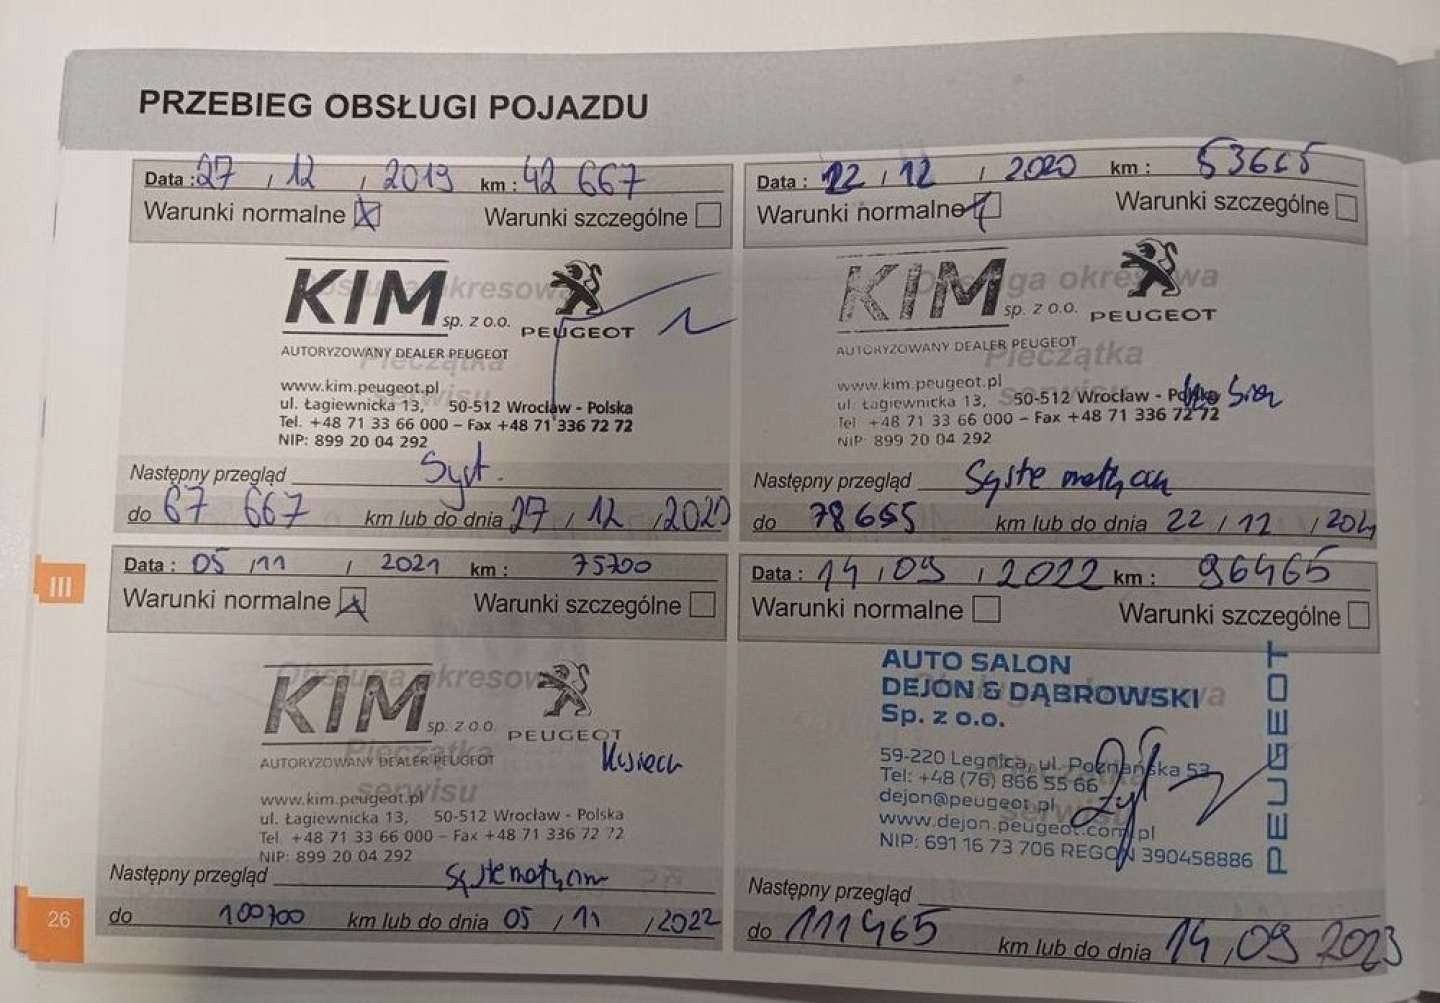 PRZEBIEG OBSŁUGI POJAZDU
Data : 27 / 12 / 2019 km : 42 667
Warunki normalne Warunki szczególne
KIM sp. z o.o. PEUGEOT
AUTORYZOWANY DEALER PEUGEOT
www.kim.peugeot.pl
ul. Łagiewnicka 13, 50-512 Wrocław - Polska
Tel. +48 71 33 66 000 – Fax +48 71 336 72 72
NIP: 899 20 04 292
Następny przegląd Syst.
do 67 667 km lub do dnia 27 / 12 / 2020
Data : 22 / 12 / 2020 km : 53655
Warunki normalne Warunki szczególne
Obsługa okresowa
KIM sp. z o.o. PEUGEOT
AUTORYZOWANY DEALER PEUGEOT
Pieczątka
serwisu
www.kim.peugeot.pl
ul. Łagiewnicka 13, 50-512 Wrocław - Polska
Tel +48 71 33 66 000 – Fax +48 71 336 72 72
NIP: 899 20 04 292
Następny przegląd Systematyczn
do 78655 km lub do dnia 22 / 12 / 2021
III
Data : 05 / 11 / 2021 km : 75700
Warunki normalne Warunki szczególne
Obsługa okresowa
KIM sp. z o.o. PEUGEOT
AUTORYZOWANY DEALER PEUGEOT
Pieczątka
serwisu
www.kim.peugeot.pl
ul. Łagiewnicka 13, 50-512 Wrocław - Polska
Tel. +48 71 33 66 000 – Fax +48 71 336 72 72
NIP: 899 20 04 292
Następny przegląd Systematyczn
do 100700 km lub do dnia 05 / 11 / 2022
Data : 14 / 09 / 2022 km : 96465
Warunki normalne Warunki szczególne
AUTO SALON
DEJON & DĄBROWSKI
Sp. z o.o.
59-220 Legnica, ul. Poznańska 53
Tel: +48 (76) 866 55 66
dejon@peugeot.pl
www.dejon.peugeot.com.pl
NIP: 691 16 73 706 REGON 390458886
PEUGEOT
Następny przegląd
do 111465 km lub do dnia 14 / 09 2023
26